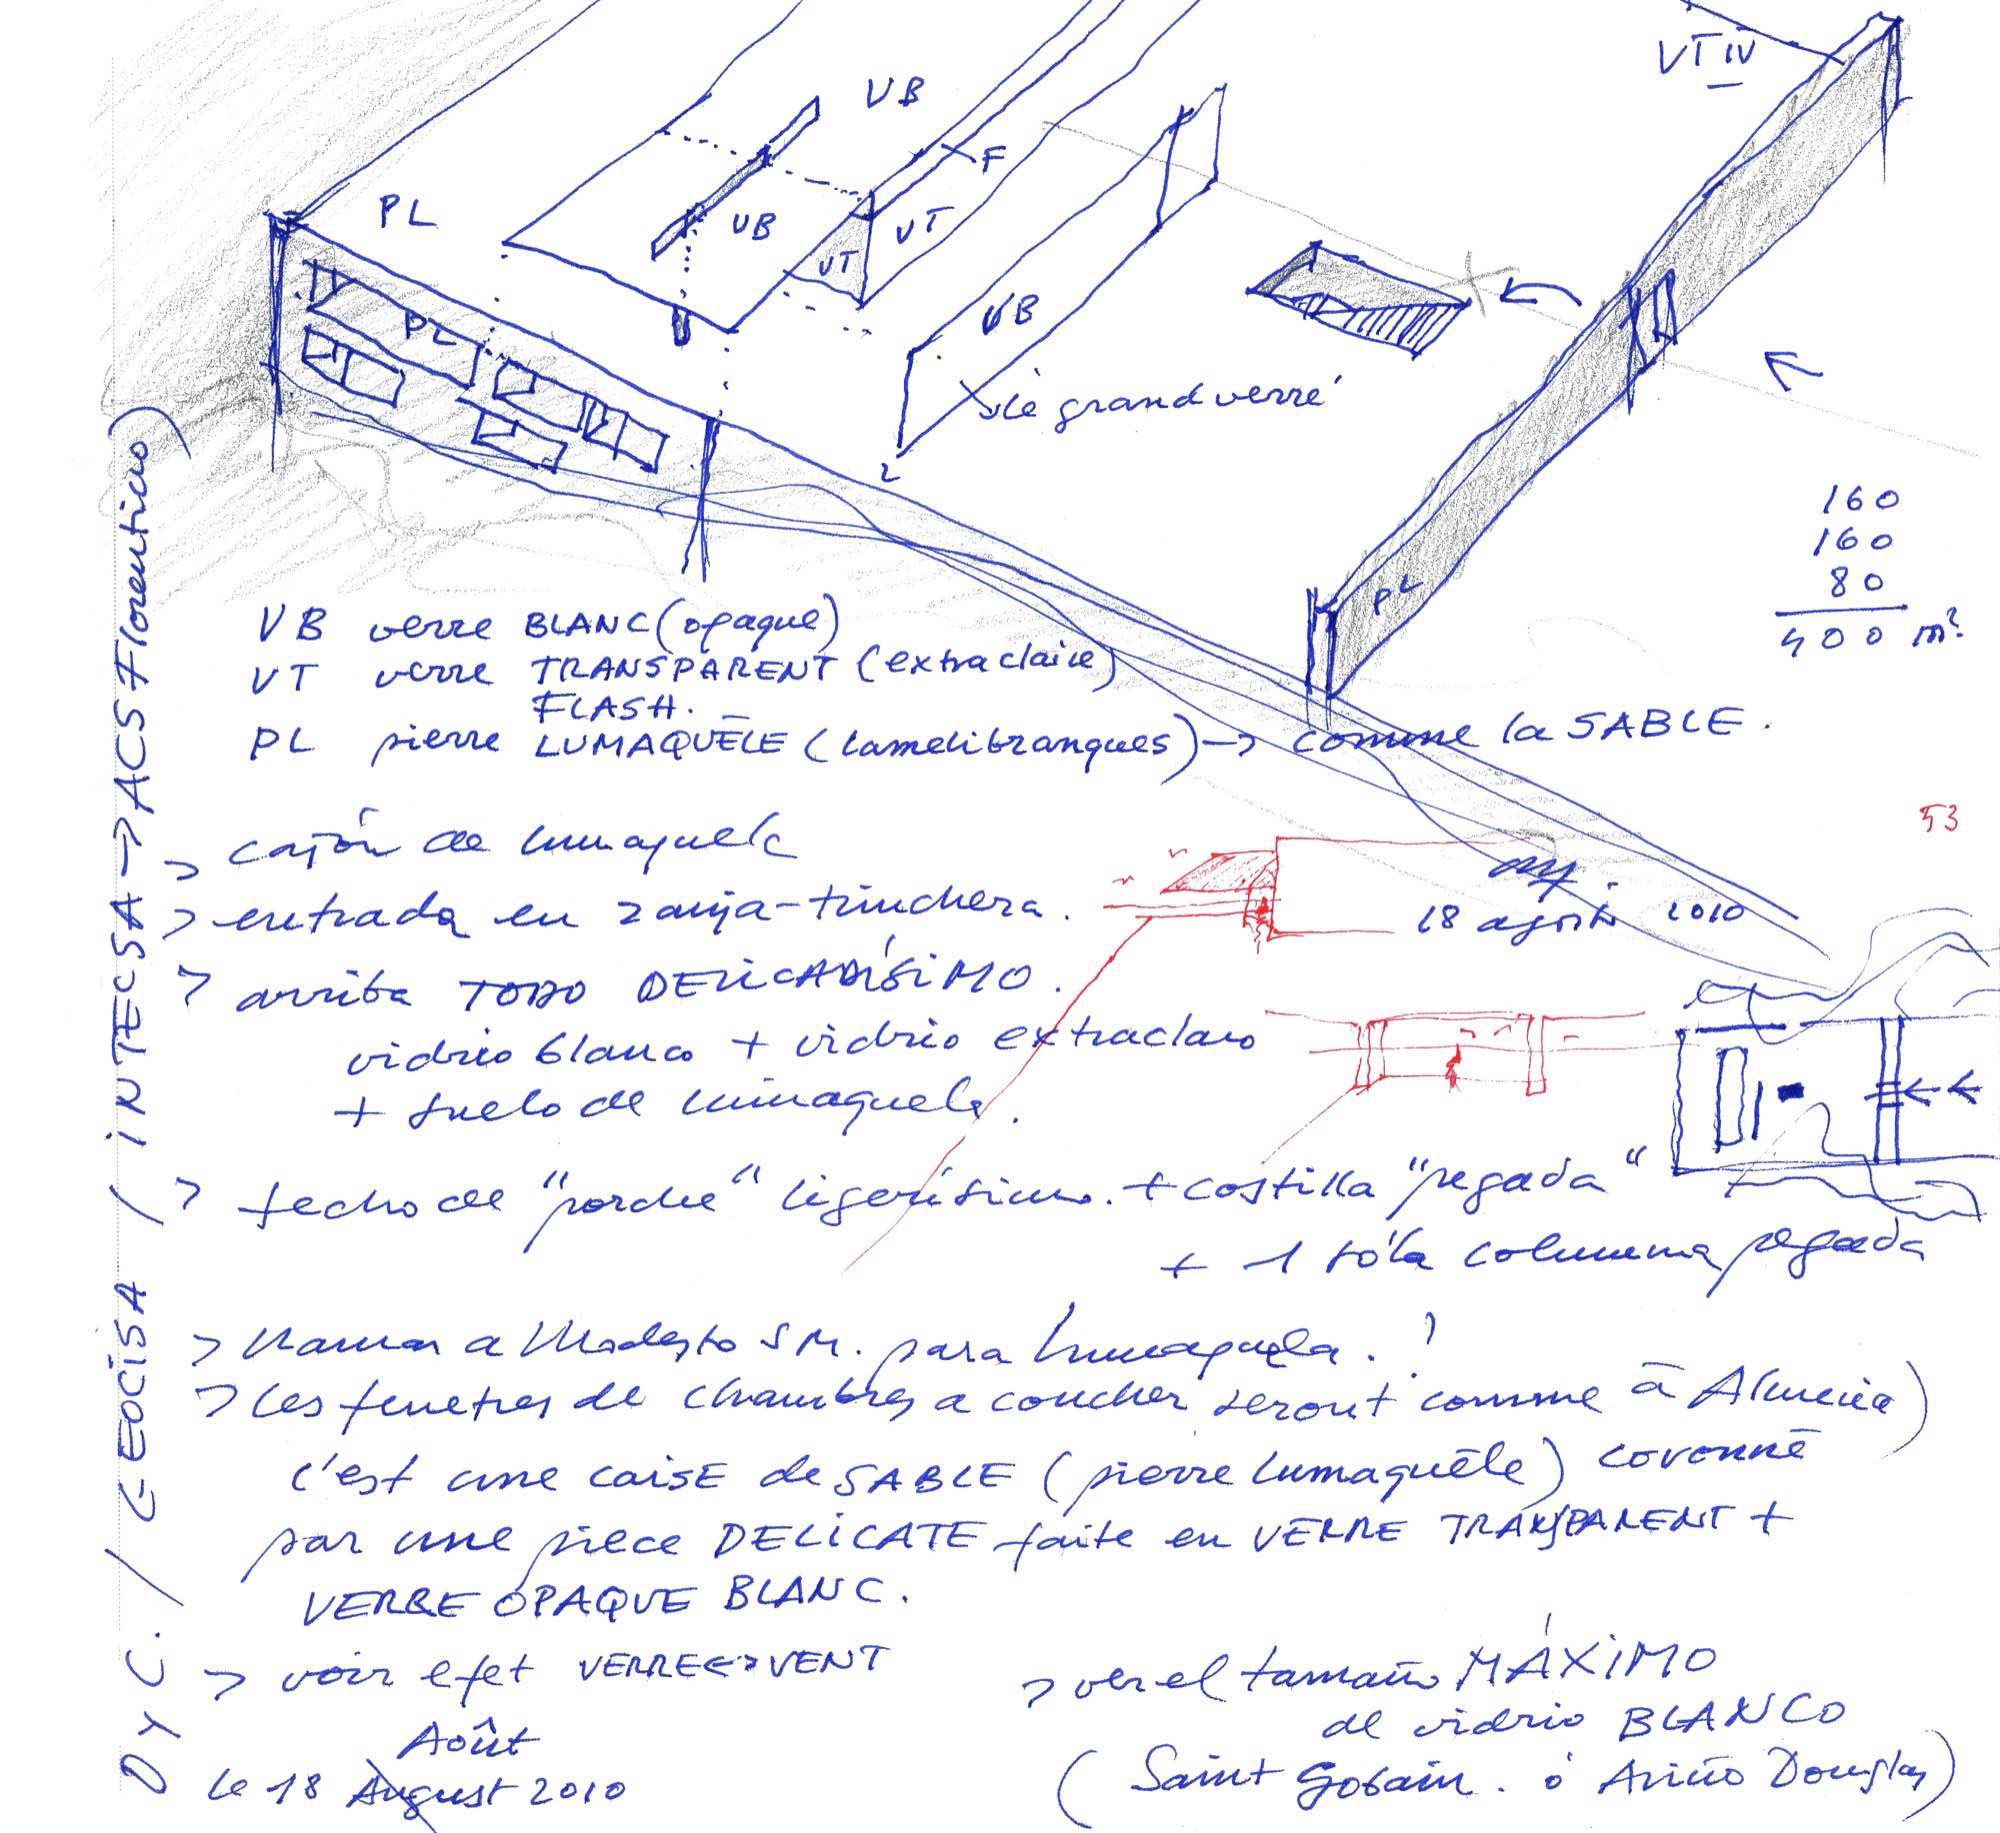 VT IV
VB
F
PL
VB
VT
VT
PL
VB
"le grand verre"
PL
160
160
80
400 m²
VB verre BLANC (opaque)
VT verre TRANSPARENT (extraclaire)
FLASH.
PL pierre LUMAQUÈLE (lamelibranques) → comme la SABLE.
53
> cajón de lumaquela
> entrada en zanja-trinchera.
18 agosto 2010
> arriba TODO DELICADÍSIMO.
vidrio blanco + vidrio extraclaro
+ suelo de lumaquela.
> techo de "porche" ligerísimo. + costilla "pegada"
+ 1 sóla columna pegada
> llamar a Modesto S M. para lumaquela. !
> les fenetres de chambres a coucher seront comme à Almeria)
c'est une caisE de SABLE (pierre lumaquèle) coronné
par une piece DELICATE faite en VERRE TRANSPARENT +
VERRE OPAQUE BLANC.
> voir efet VERRE<>VENT
> ver el tamaño MÁXIMO
de vidrio BLANCO
(Saint Gobain. ó Ariño Douglas)
Août
le 18 August 2010
D y C. / GEOCISA / INTECSA → ACS Florentino)